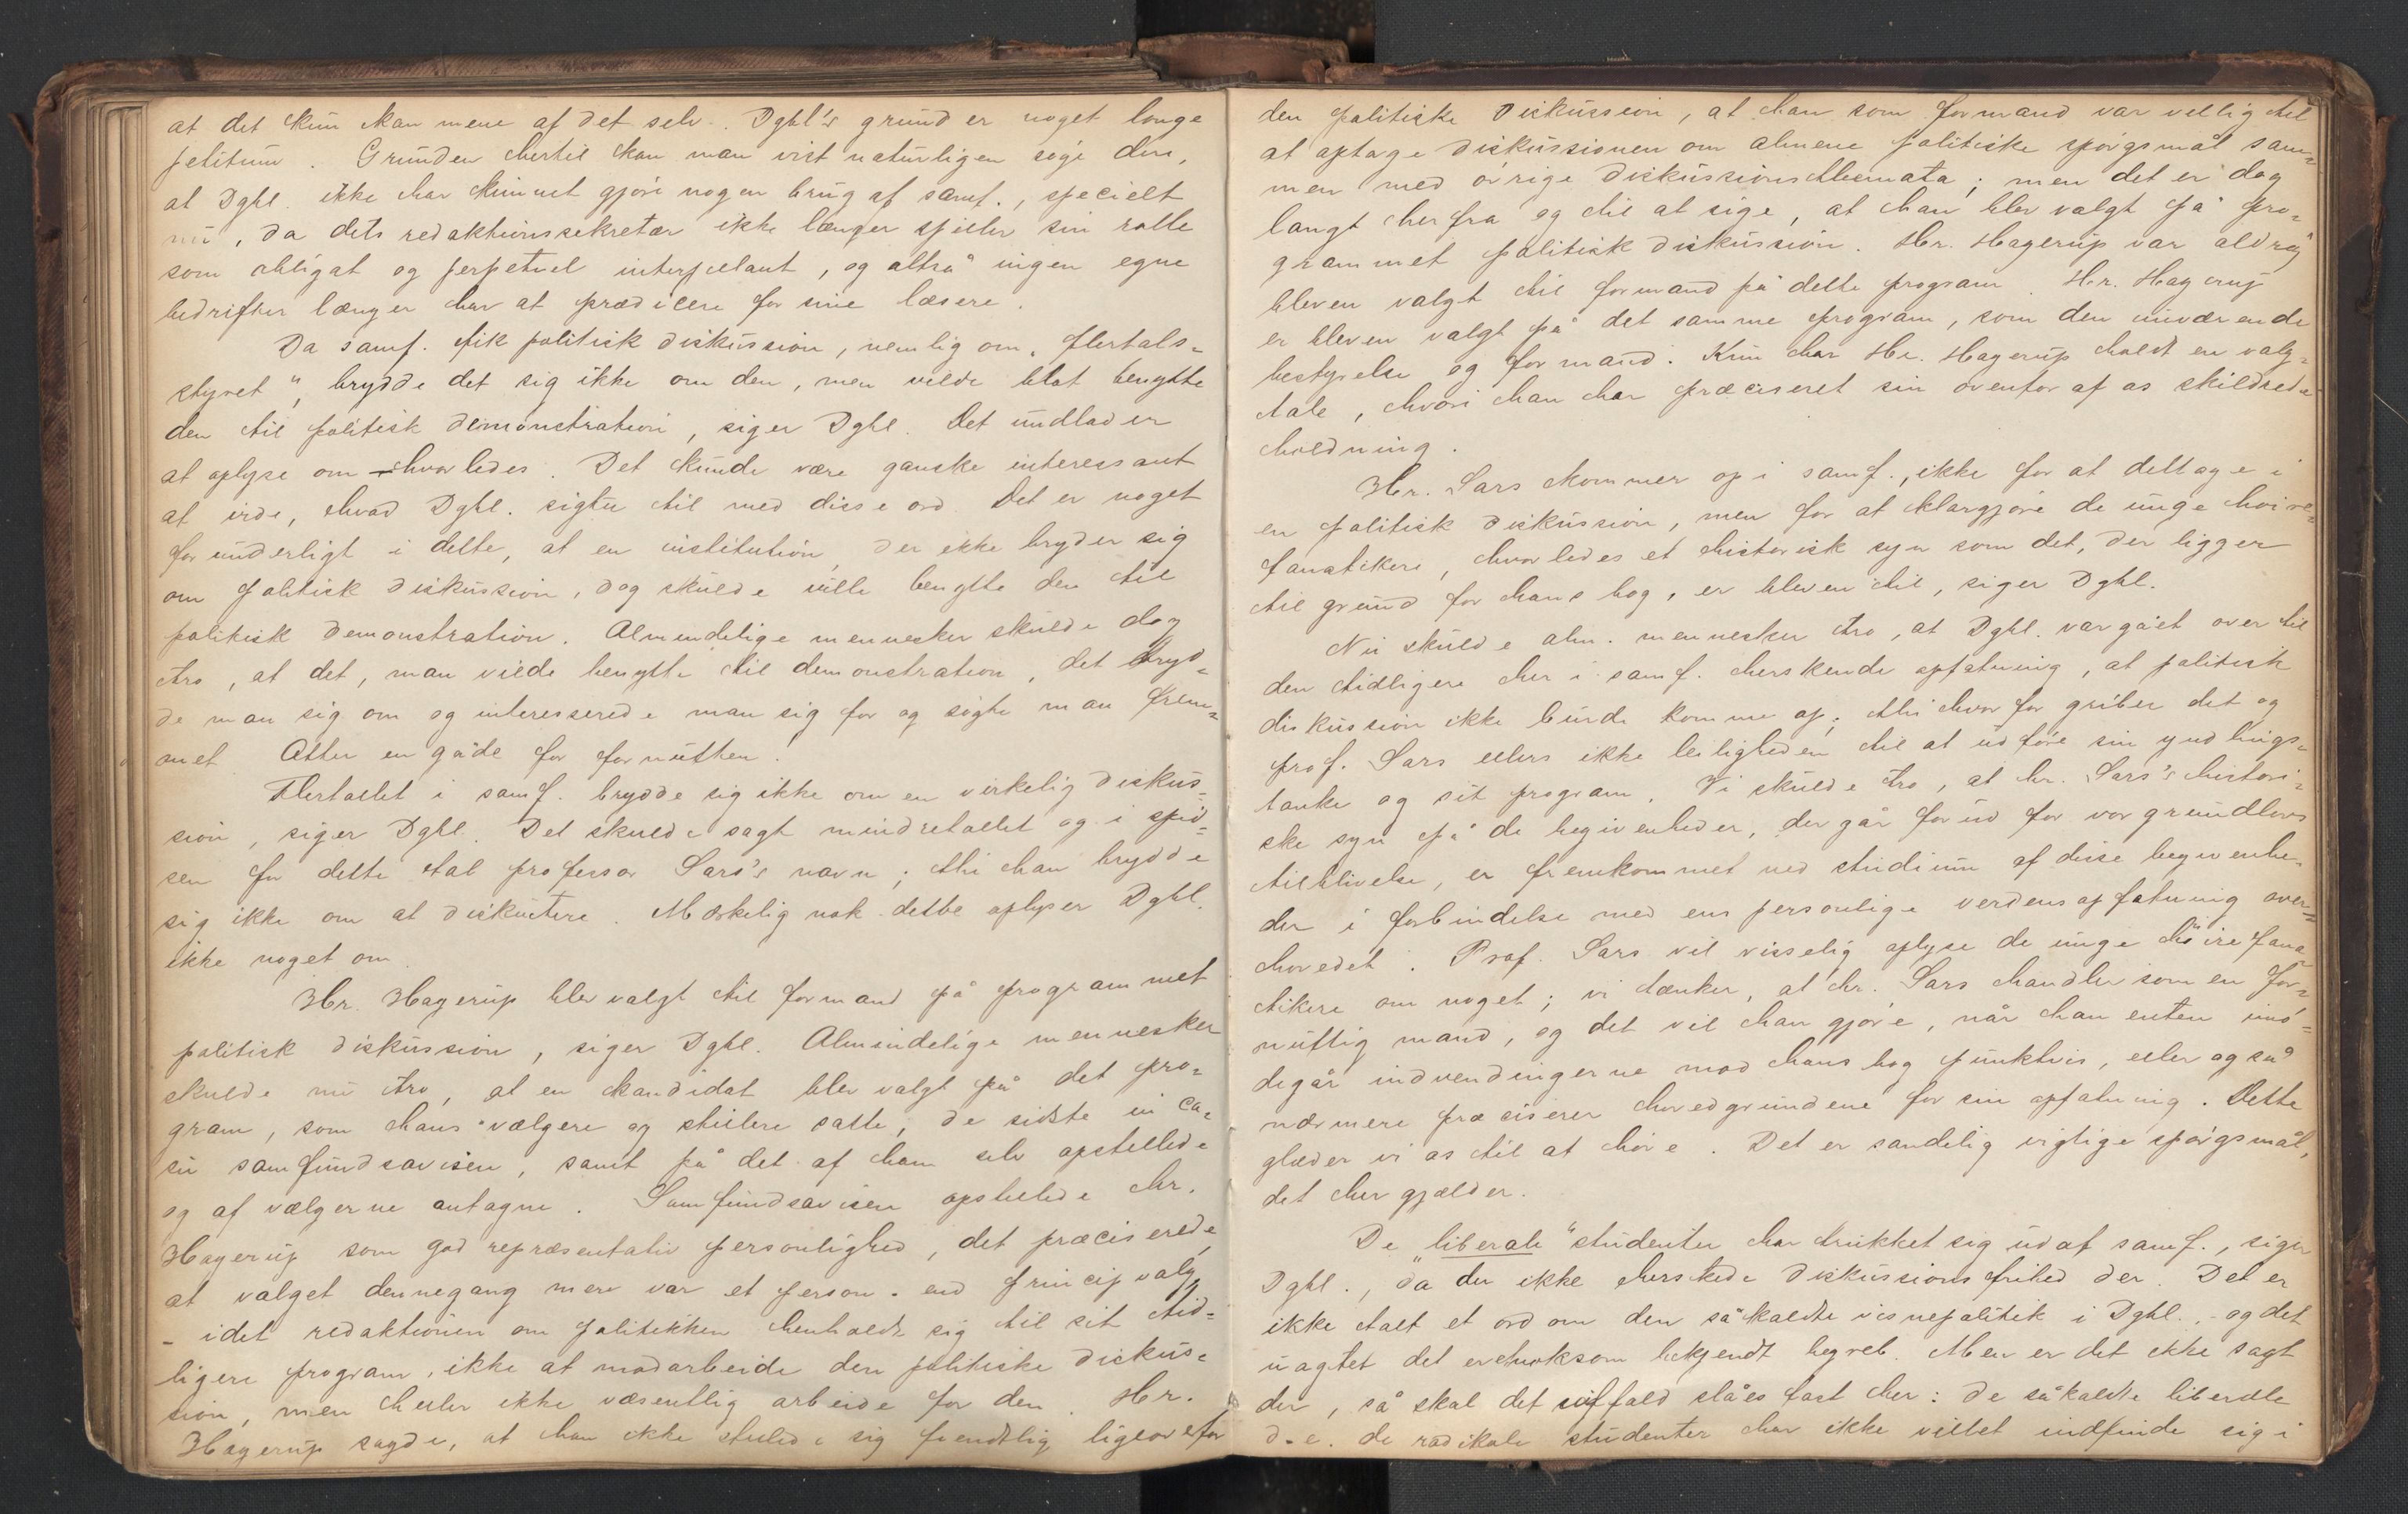 at det kun kan mene af det selv. Dgbl's grund er noget longe
petitum. Grunden hertil kan man vist naturligen søge deri,
at Dgbl. ikke har kunnet gjøre nogen brug af samf., specielt
nu, da dets redaktionssekretær ikke længer spiller sin rolle
som obligat og perpetuel interpellant, og altså ingen egne
bedrifter længer har at prædicere for sine læsere.
Da samf. fik politisk diskussion, nemlig om "flertals-
styret", brydde det sig ikke om den, men vilde blot benytte
den til politisk demonstration, siger Dgbl. Det undlader
at oplyse om hvorledes. Det kunde være ganske interessant
at vide, hvad Dgbl. sigter til med disse ord. Det er noget
forunderligt i dette, at en institution, der ikke bryder sig
om politisk diskussion, dog skulde ville benytte den til
politisk demonstration. Almindelige mennesker skulde dog
tro, at det, man vilde benytte til demonstration, det bryd-
de man sig om og interesserede man sig for og søgte man frem-
met. Atter en gåde for fornuften.
Flertallet i samf. brydde sig ikke om en virkelig diskus-
sion, siger Dgbl. Det skulde sagt mindretallet og i spid-
sen for dette sat professor Sars's navn; thi han brydde
sig ikke om at diskutere. Mærkelig nok dette oplyser Dgbl.
ikke noget om.
Hr. Hagerup blev valgt til formand på programmet
politisk diskussion, siger Dgbl. Almindelige mennesker
skulde nu tro, at en kandidat blev valgt på det pro-
gram, som hans vælgere og stillere satte, de sidste in ca-
su samfundsavisen, samt på det af ham selv opstillede
og af vælgerne antagne. Samfundsavisen opstillede hr.
Hagerup som god repræsentativ personlighed, det præciserede,
at valget dennegang mere var et person- end principvalg,
- idet redaktionen om politikken henholdt sig til sit tid-
ligere program, ikke at modarbeide den politiske diskus-
sion, men heller ikke væsentlig arbeide for den. Hr.
Hagerup sagde, at han ikke stillede sig fiendtlig ligeoverfor
den politiske diskussion, at han som formand var villig til
at optage diskussionen om almene politiske spørgsmål sam-
men med øvrige diskussionsthemata; men det er dog
langt herfra og til at sige, at han blev valgt på pro-
grammet politisk diskussion. Hr. Hagerup var aldrig
bleven valgt til formand på dette program. Hr. Hagerup
er bleven valgt på det samme program, som den nuværende
bestyrelse og formand. Kun har Hr. Hagerup holdt en valg-
tale, hvori han har præciseret sin ovenfor af os skildrede
holdning.
Hr. Sars kommer op i samf., ikke for at deltage i
en politisk diskussion, men for at klargjøre de unge høire-
fanatikere, hvorledes et historisk syn som det, der ligger
til grund for hans bog, er bleven til, siger Dgbl.
Nu skulde alm. mennesker tro, at Dgbl. var gået over til
den tidligere her i samf. herskende opfatning, at politisk
diskussion ikke burde komme op; thi hvorfor griber det og
prof. Sars ellers ikke leiligheden til at udføre sin yndlings-
tanke og sit program. Vi skulde tro, at hr. Sars's histori-
ske syn på de begivenheder, der går forud for vor grundlovs
tilblivelse, er fremkommet ved studium af disse begivenhe-
der i forbindelse med ens personlige verdensopfatning over-
hovedet. Prof. Sars vil visselig oplyse de unge høirefana-
tikere om noget; vi tænker, at hr. Sars handler som en for-
nuftig mand, og det vil han gjøre, når han enten imø-
degår indvendingerne mod hans bog punktvis, eller også
nærmere præciserer hovedgrundene for sin opfatning. Dette
glæder vi os til at høre. Det er sandelig vigtige spørgsmål,
det her gjælder.
De "liberale" studenter har trukket sig ud af samf., siger
Dgbl., da der ikke herskede diskussionsfrihed der. Det er
ikke talt et ord om den såkaldte visnepolitik i Dgbl., og det
uagtet det er et noksom bekjendt begreb. Men er det ikke sagt
der, så skal det iaffald slåes fast her: de såkaldte liberale
d.e. de radikale studenter har ikke villet indfinde sig i